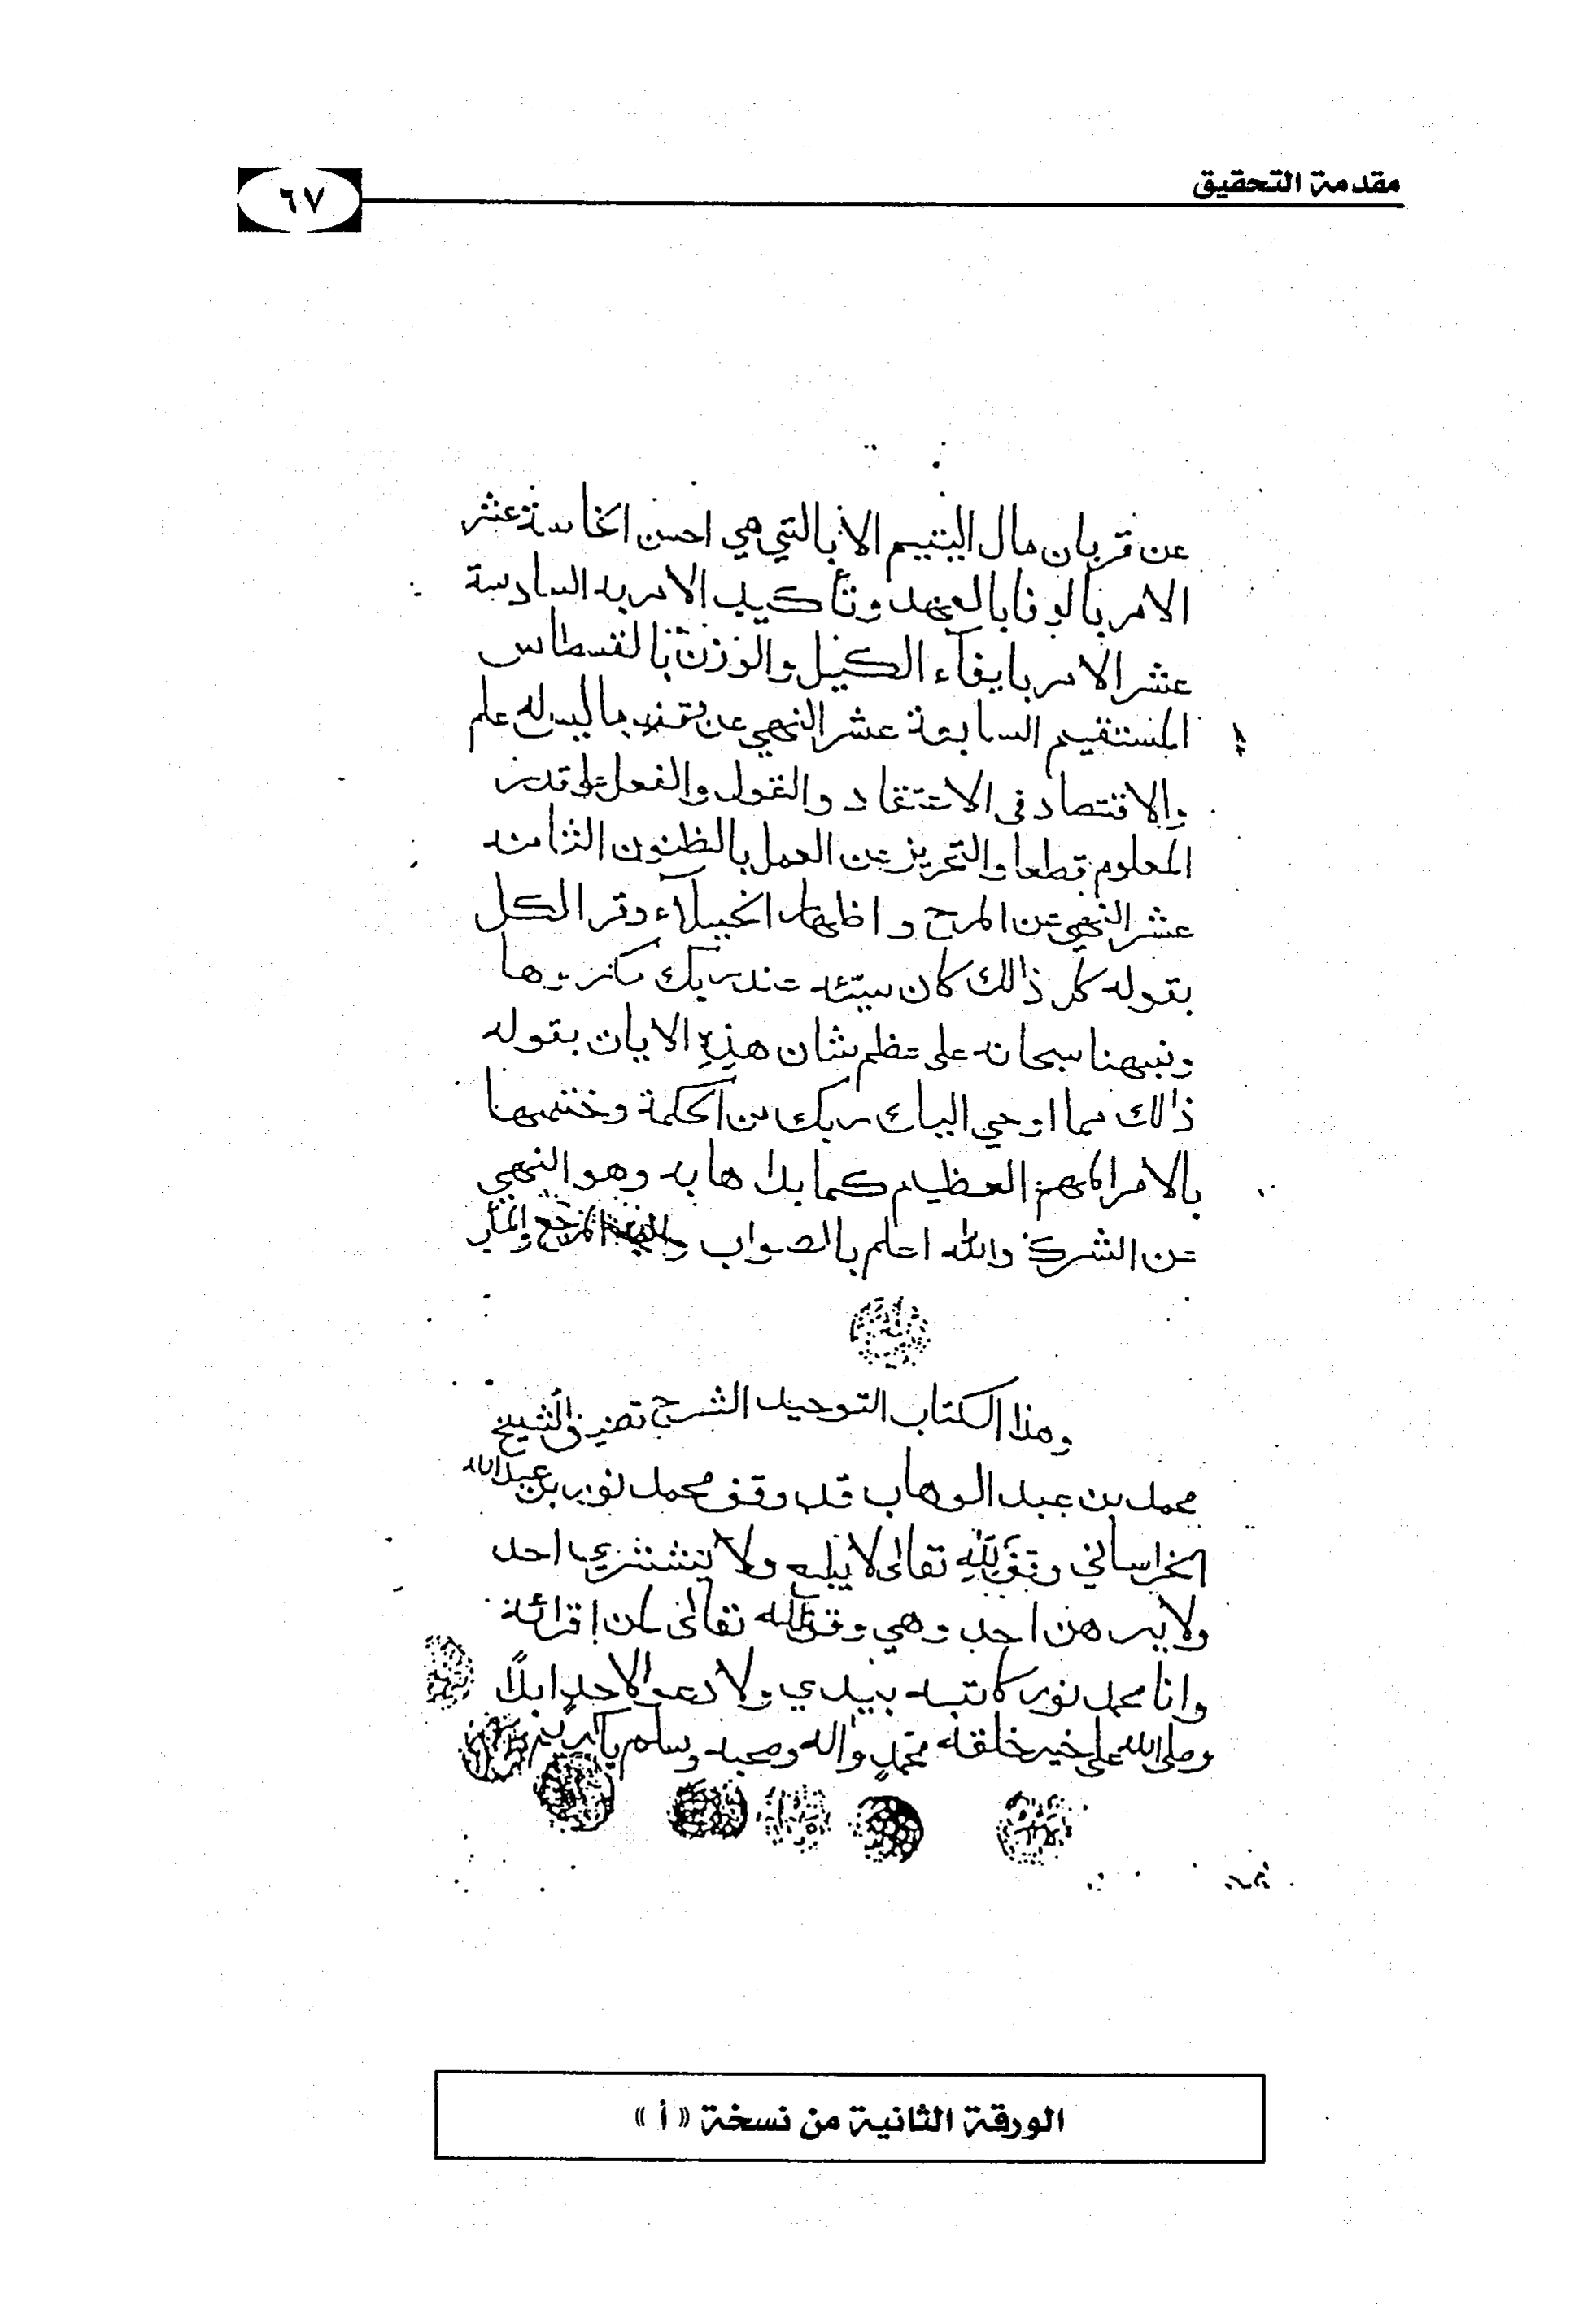 مقدمة التحقيق
٦٧
عن قربان مال اليتيم الا بالتي هي احسن الخامسة عشر
الامر بالوفا بالعهد وتأكيد الامر به السادسة
عشر الامر بايفآء الكيل والوزن بالقسطاس
المستقيم السابعة عشر النهي عن ما ليس له علم
والاقتصاد في الاعتقاد والقول والفعل على قدر
المعلوم قطعا والتحريز عن العمل بالظنون الثامنه
عشر النهي عن المرح واظهار الخيلآء وقر الكل
بقوله كل ذالك كان سيئه عند ربك مكروها
ونبهنا سبحانه على عظم شان هذه الايات بقوله
ذالك مما اوحي اليك ربك من الحكمة وختمها
بالامر المهم العظيم كما بداها به وهو النهي
عن الشرك والله اعلم بالصواب واليه المرجع والمأب
وهذا الكتاب التوحيد الشرح تصنيف الشيخ
محمد بن عبد الوهاب قد وقف محمد نور بن عبد الله
الخراساني وقف لله تعالى لا يبلع ولا يتشتري احد
ولا يرهن احد وهي وقف لله تعالى لمن اقرائة
وانا محمد نور كاتبه بيدي ولا دعو الاحد ابدًا
وصلى الله على خير خلقه محمد واله وصحبه وسلم
الورقة الثانية من نسخة «أ»